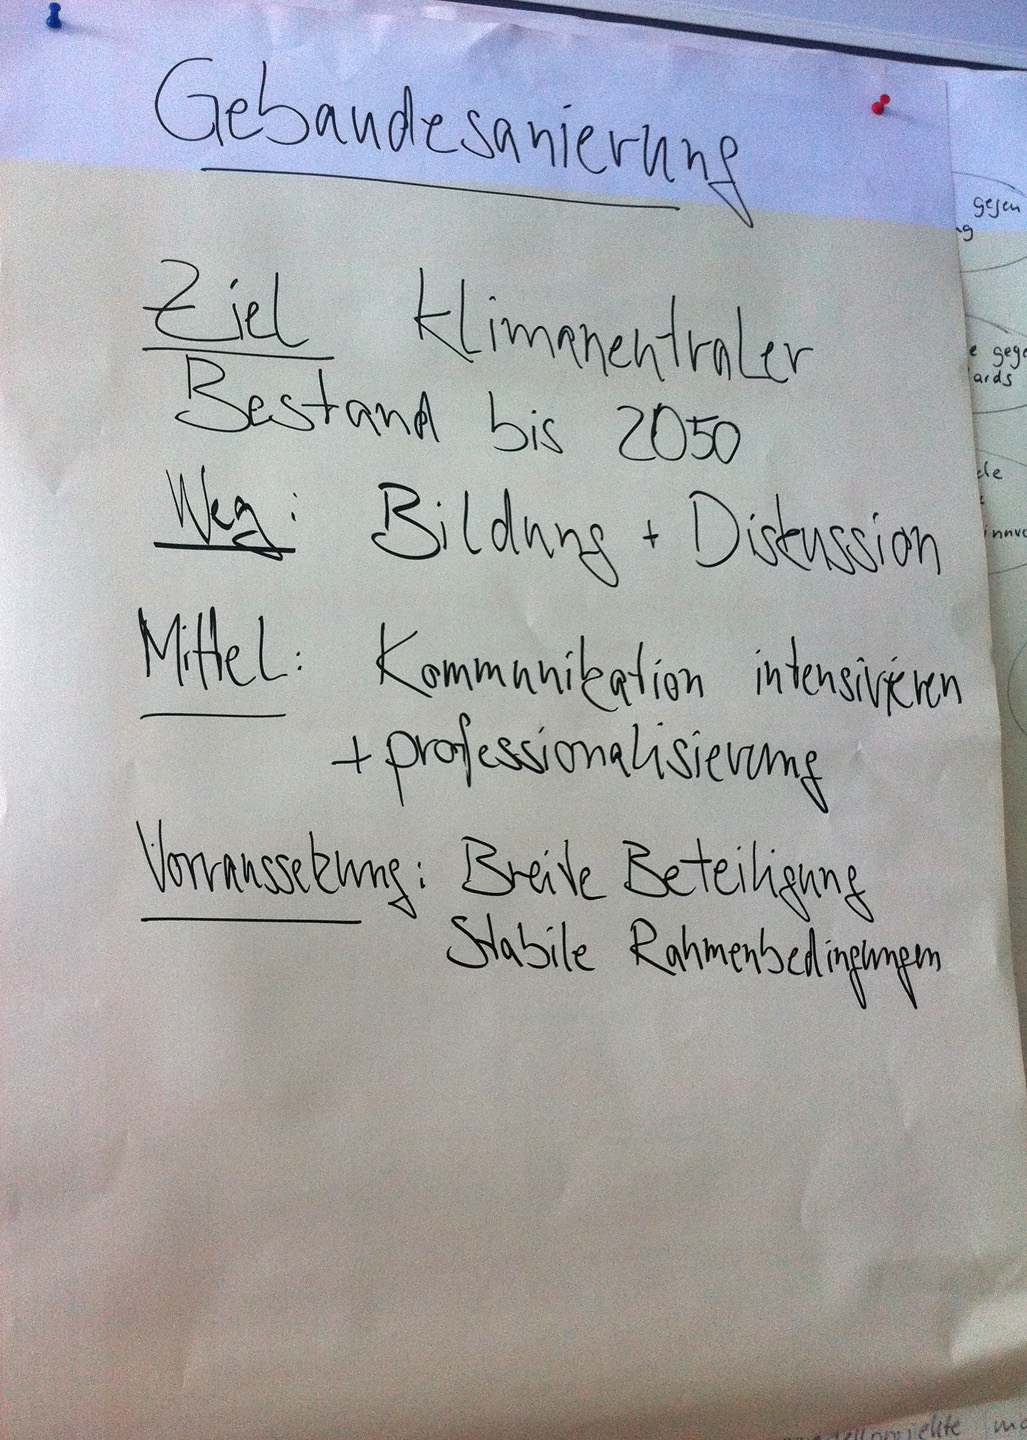 Gebaudesanierung
Ziel Klimaneutraler
Bestand bis 2050
Weg: Bildung + Diskussion
Mittel: Kommunikation intensivieren
+ professionalisierung
Vorraussetzung: Breite Beteiligung
Stabile Rahmenbedingungen
gegen